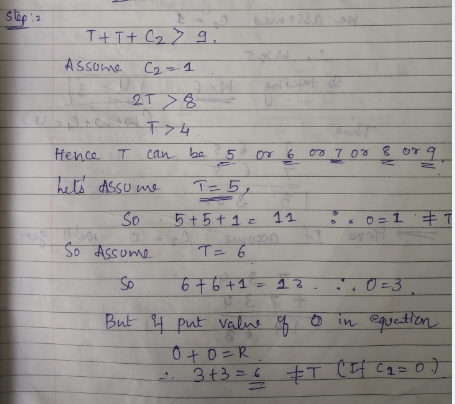 Step:2
T+T+C2 > 9.
Assume C2=1
2T > 8
T > 4.
Hence T can be 5 or 6 or 7 or 8 or 9
Let's Assume T=5,
So 5+5+1 = 11 ∴ O=1 ≠ T
So Assume T=6
So 6+6+1 = 13. ∴ O=3.
But if put value of O in equation
O+O=R.
∴ 3+3=6 ≠T (If C1=0.)